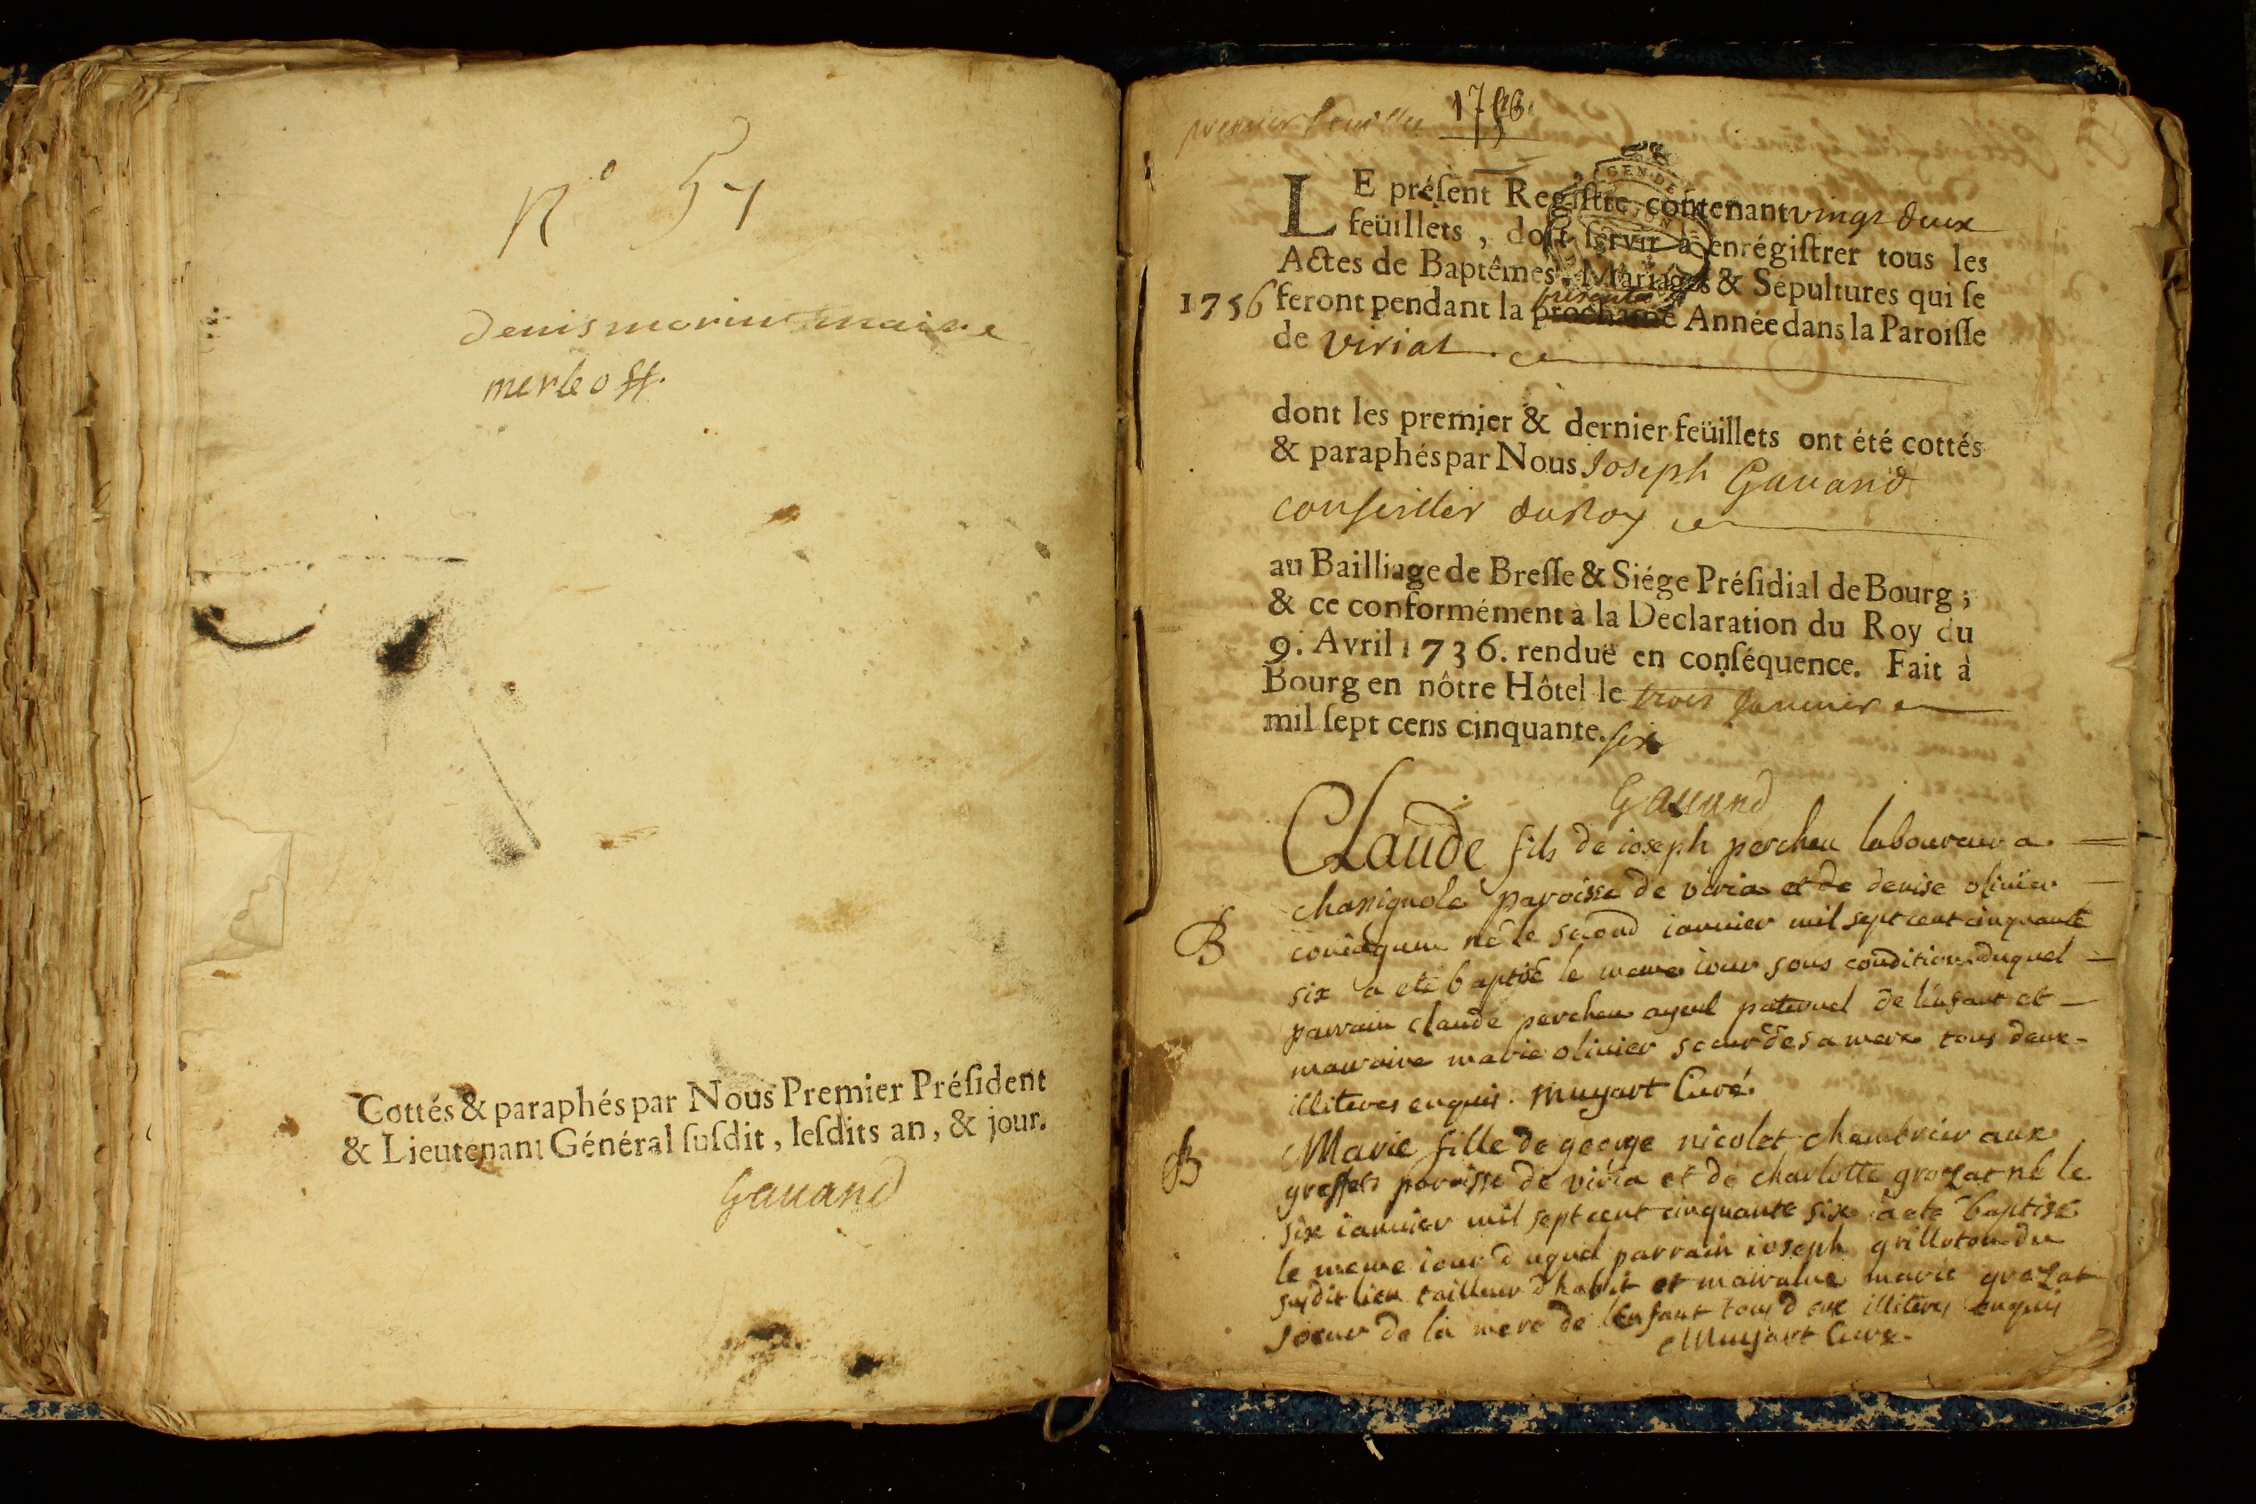 N° 57
denis morin maire
merle off.
Cottés & paraphés par Nous Premier Préſident
& Lieutenant Général ſuſdit, leſdits an, & jour.
Gauand
premier feuillet
1756
LE préſent Regiſtre contenant vingt deux
feüillets, doit ſervir à enrégiſtrer tous les
Actes de Baptêmes, Mariages & Sépultures qui ſe
présente
1756 feront pendant la prochaine Année dans la Paroiſſe
de viriat
dont les premier & dernier feüillets ont été cottés
& paraphés par Nous Joseph Gauand
conseiller du Roy
au Bailliage de Breſſe & Siége Préſidial de Bourg ;
& ce conformément à la Declaration du Roy du
9. Avril 1736. renduë en conſéquence. Fait à
Bourg en nôtre Hôtel le trois Januier
mil ſept cens cinquante. six
Gauand
Claude fils de ioseph percheu laboureur a
chanignole paroisse de viria et de denise oliuier
B né le second ianuier mil sept cent cinquante
six a eté baptisé le meme iour sous condition duquel
parrain claude percheu ayeul paternel de l'enfant et
marraine marie oliuier soeur de sa mere tous deux
illiteres enquis. Muyart Curé.
B Marie fille de george nicolet chambrier aux
greffets paroisse de viria et de charlotte grozat né le
six ianuier mil sept cent cinquante six a eté baptisé
le meme iour duquel parrain ioseph grilloton du
susdit lieu tailleur d'habit et marraine marie grozat
soeur de la mere de l'enfant tous deux illiteres enquis
Muyart Curé.